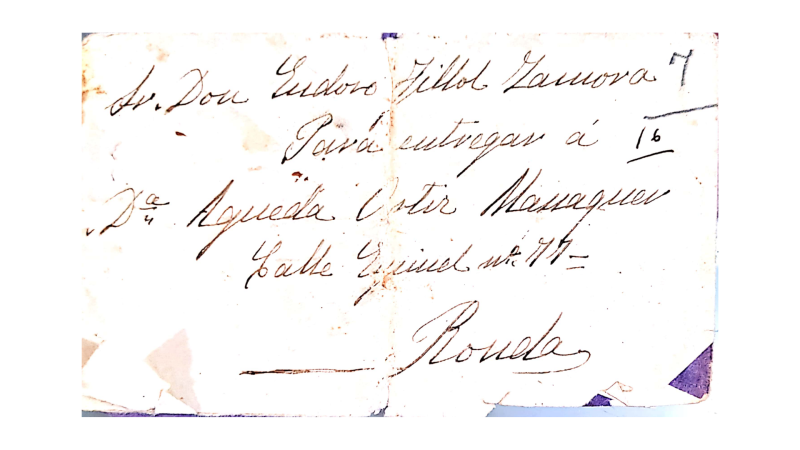 Sr. Don Eudoro Fillol Zamora 7
Pará entregar á 16
Dª Agueda Oster Massaguer
Calle nº. 77 -
Ronda